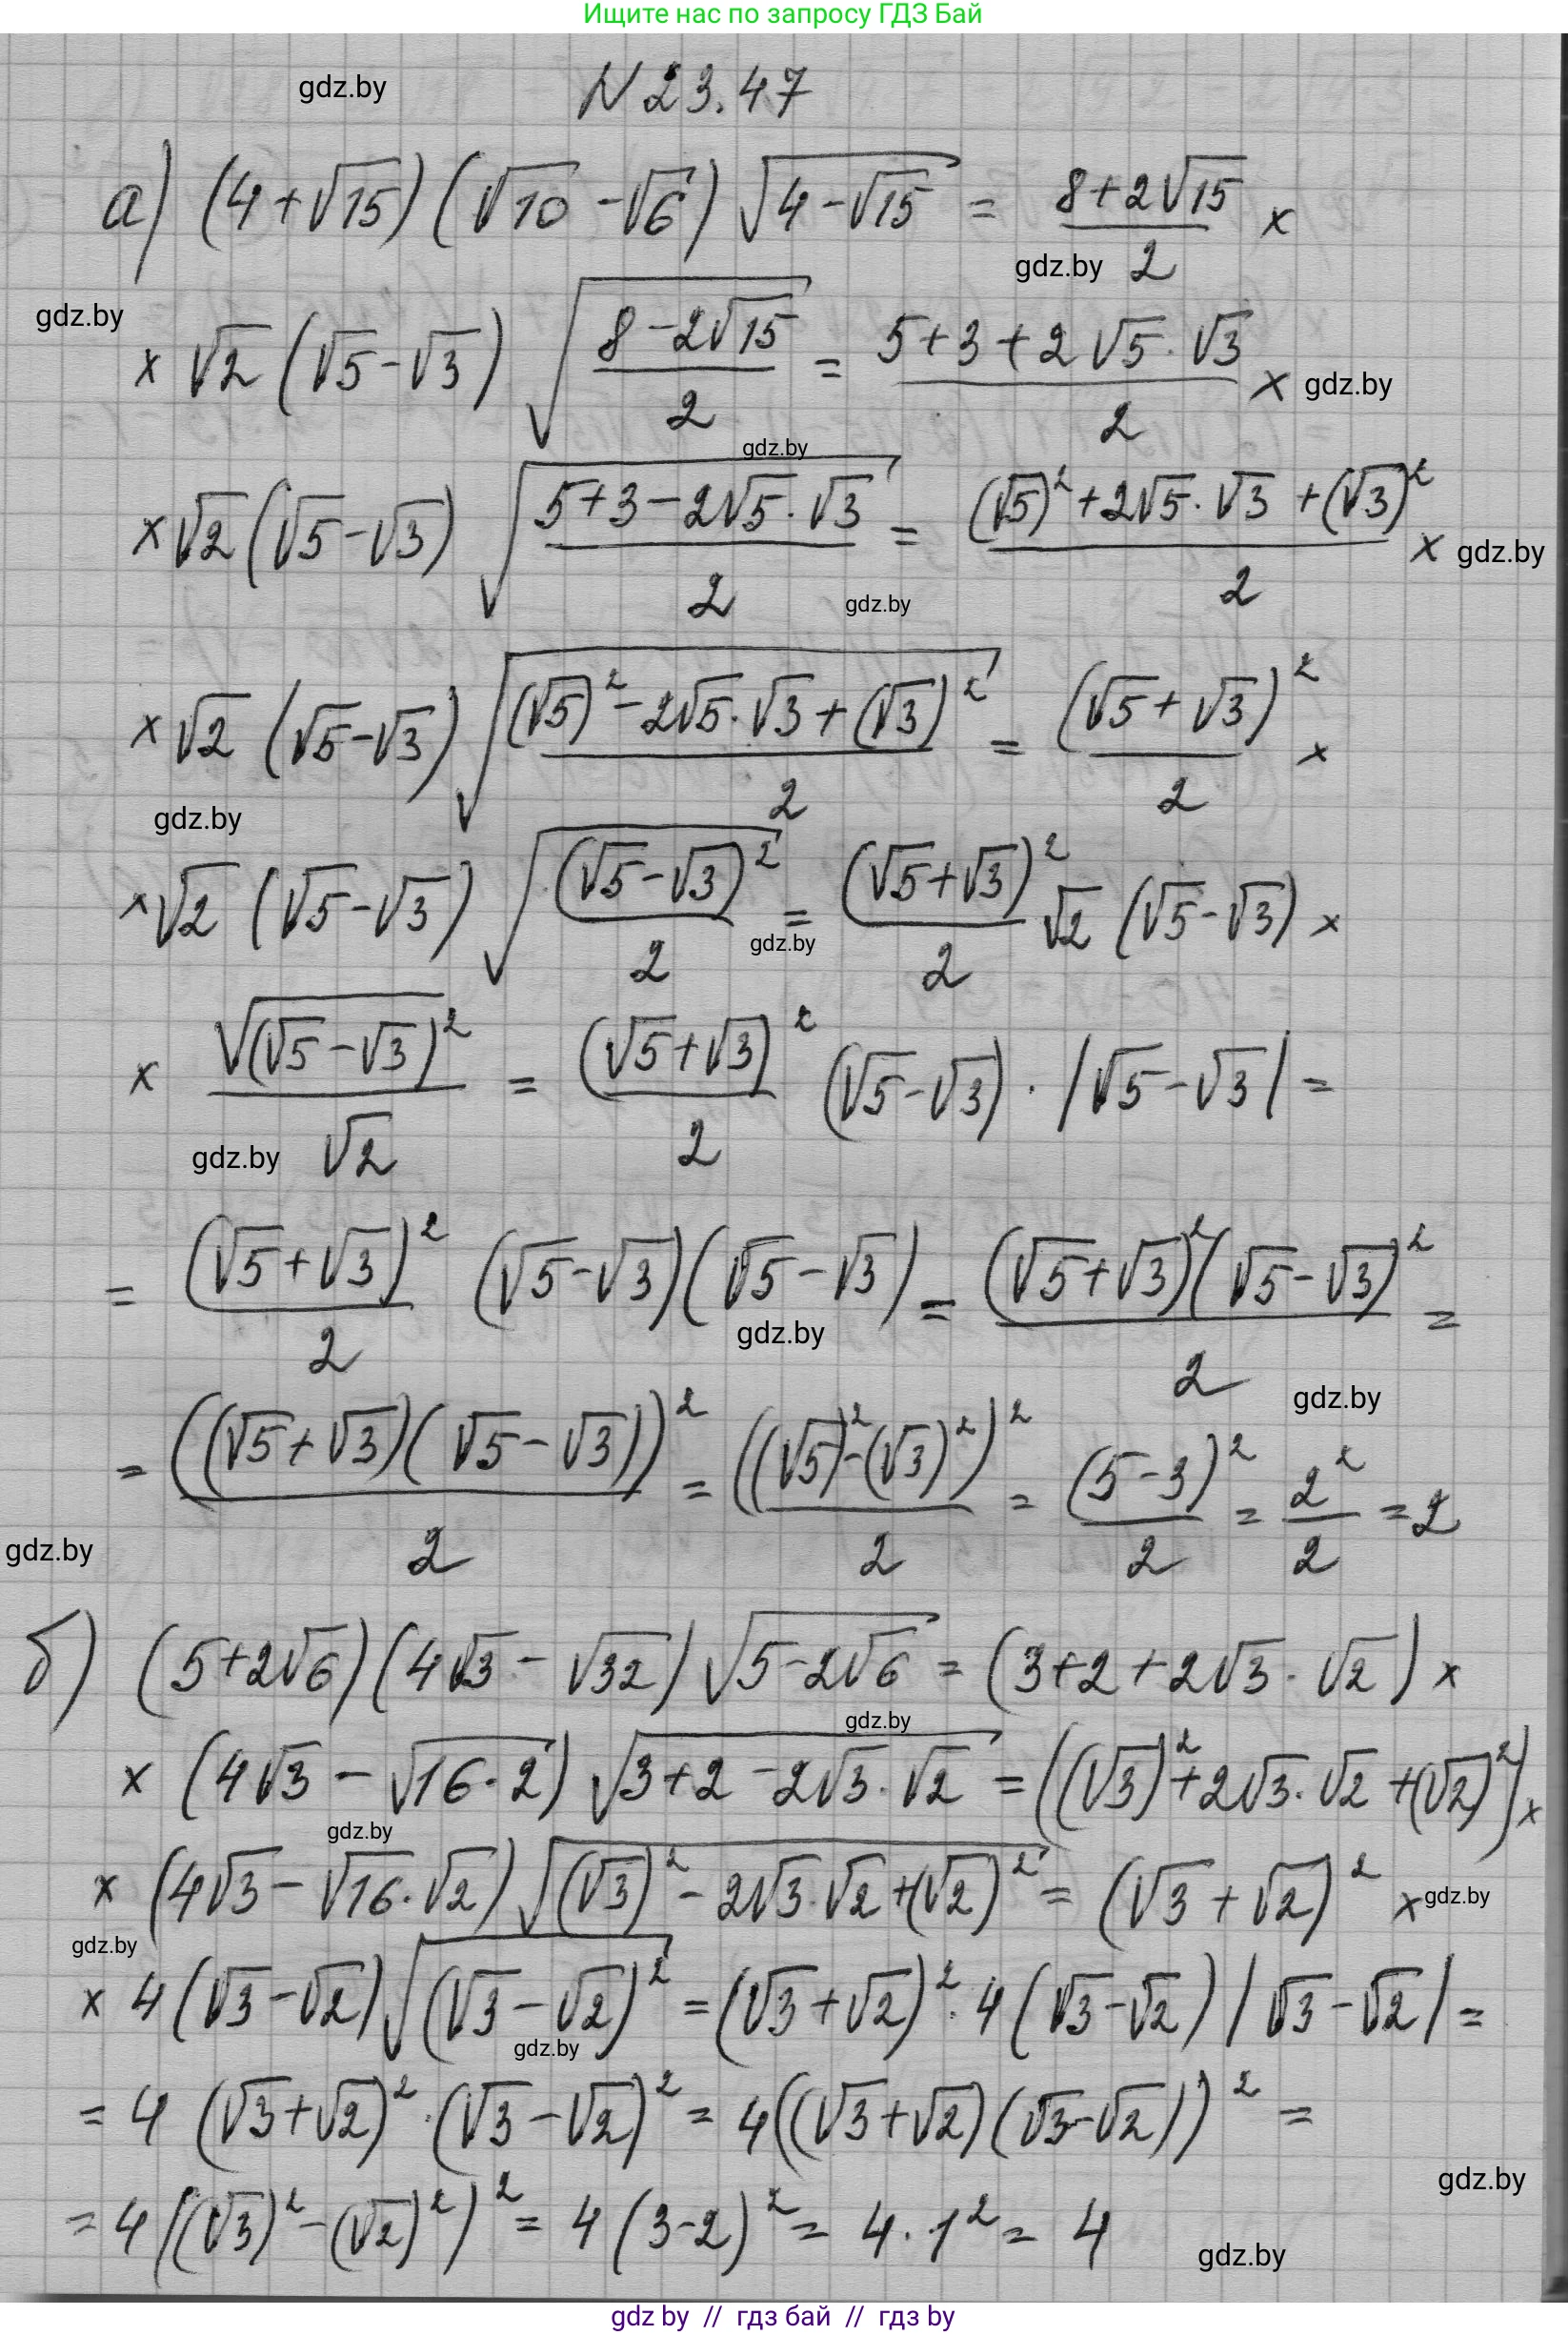 Ищите нас по запросу ГДЗ Бай
gdz.by
N 23.47
а) (4+√15)(√10-√6)√(4-√15) = (8+2√15)/2 ×
gdz.by
gdz.by
× √2(√5-√3)√((8-2√15)/2) = (5+3+2√5·√3)/2 × gdz.by
gdz.by
×√2(√5-√3)√((5+3-2√5·√3)/2) = ((√5)²+2√5·√3+(√3)²)/2 × gdz.by
gdz.by
×√2(√5-√3)√(((√5)²-2√5·√3+(√3)²)/2) = (√5+√3)²/2 ×
gdz.by
×√2(√5-√3)√((√5-√3)²/2) = (√5+√3)²/2 √2(√5-√3) ×
gdz.by
× √(√5-√3)²/√2 = (√5+√3)²/2 (√5-√3)·|√5-√3| =
gdz.by
= (√5+√3)²/2 (√5-√3)(√5-√3) = (√5+√3)²(√5-√3)²/2 =
gdz.by
gdz.by
= ((√5+√3)(√5-√3))²/2 = ((√5)²-(√3)²)²/2 = (5-3)²/2 = 2²/2 = 2
gdz.by
б) (5+2√6)(4√3-√32)√(5-2√6) = (3+2+2√3·√2) ×
gdz.by
× (4√3-√(16·2))√(3+2-2√3·√2) = ((√3)²+2√3·√2+(√2)²)×
gdz.by
× (4√3-√16·√2)√((√3)²-2√3·√2+(√2)²) = (√3+√2)² × gdz.by
gdz.by
× 4(√3-√2)√(√3-√2)² = (√3+√2)²·4(√3-√2)|√3-√2| =
gdz.by
= 4(√3+√2)²·(√3-√2)² = 4((√3+√2)(√3-√2))² =
gdz.by
= 4((√3)²-(√2)²)² = 4(3-2)² = 4·1² = 4
gdz.by
gdz by // гдз бай // гдз by